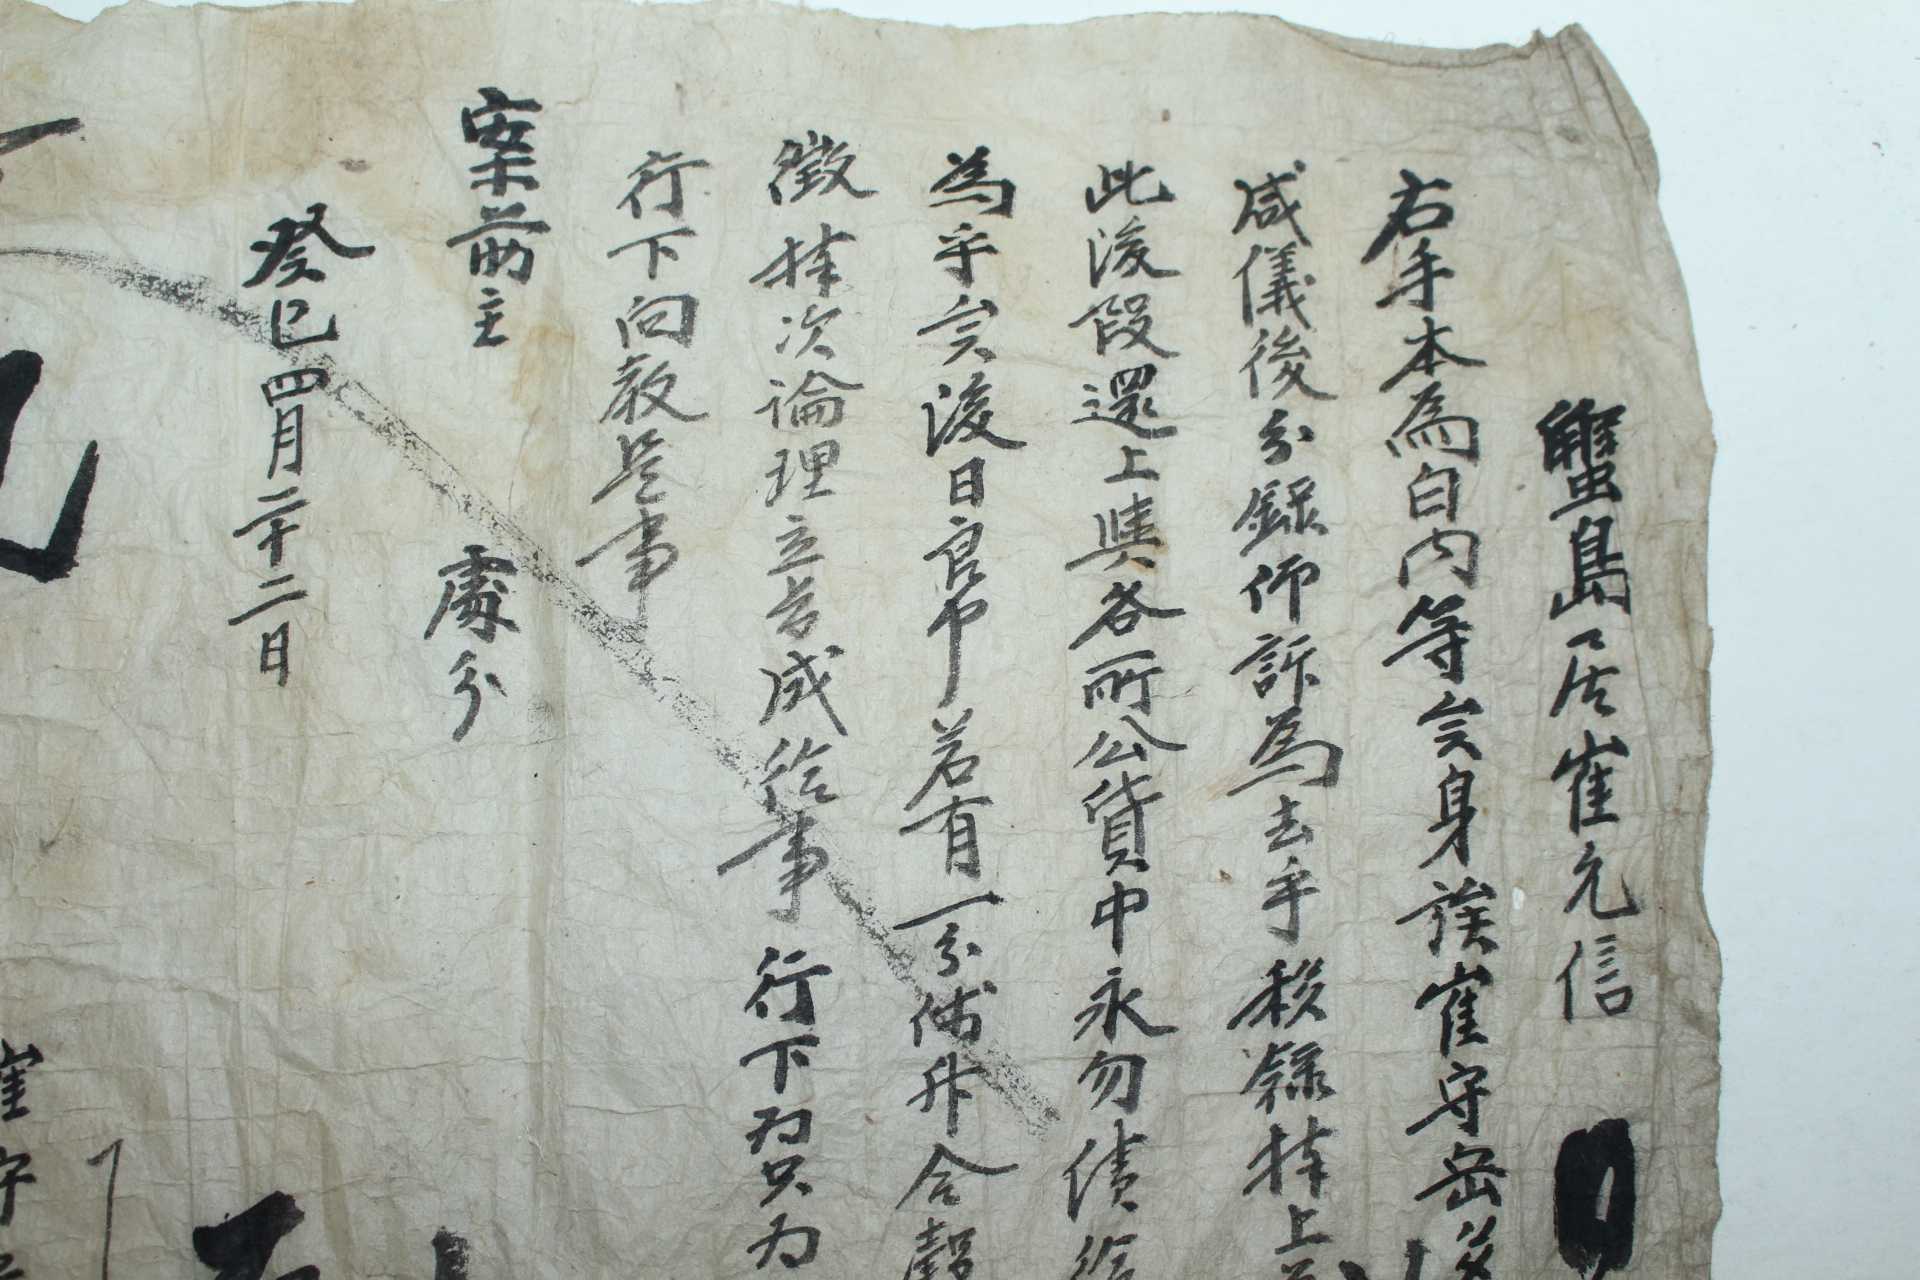 蟹島居崔元信
右手本爲白內等矣身族崔守岳
咸儀後分錄仰訴爲去乎 錄捧上
此後段還上與各所公貨中永勿債給
爲乎矣後日良中若有一分 升合
徵捧次論理立旨成給事行下爲只爲
行下向敎是事
案前主 處分
癸巳四月二十二日
崔守